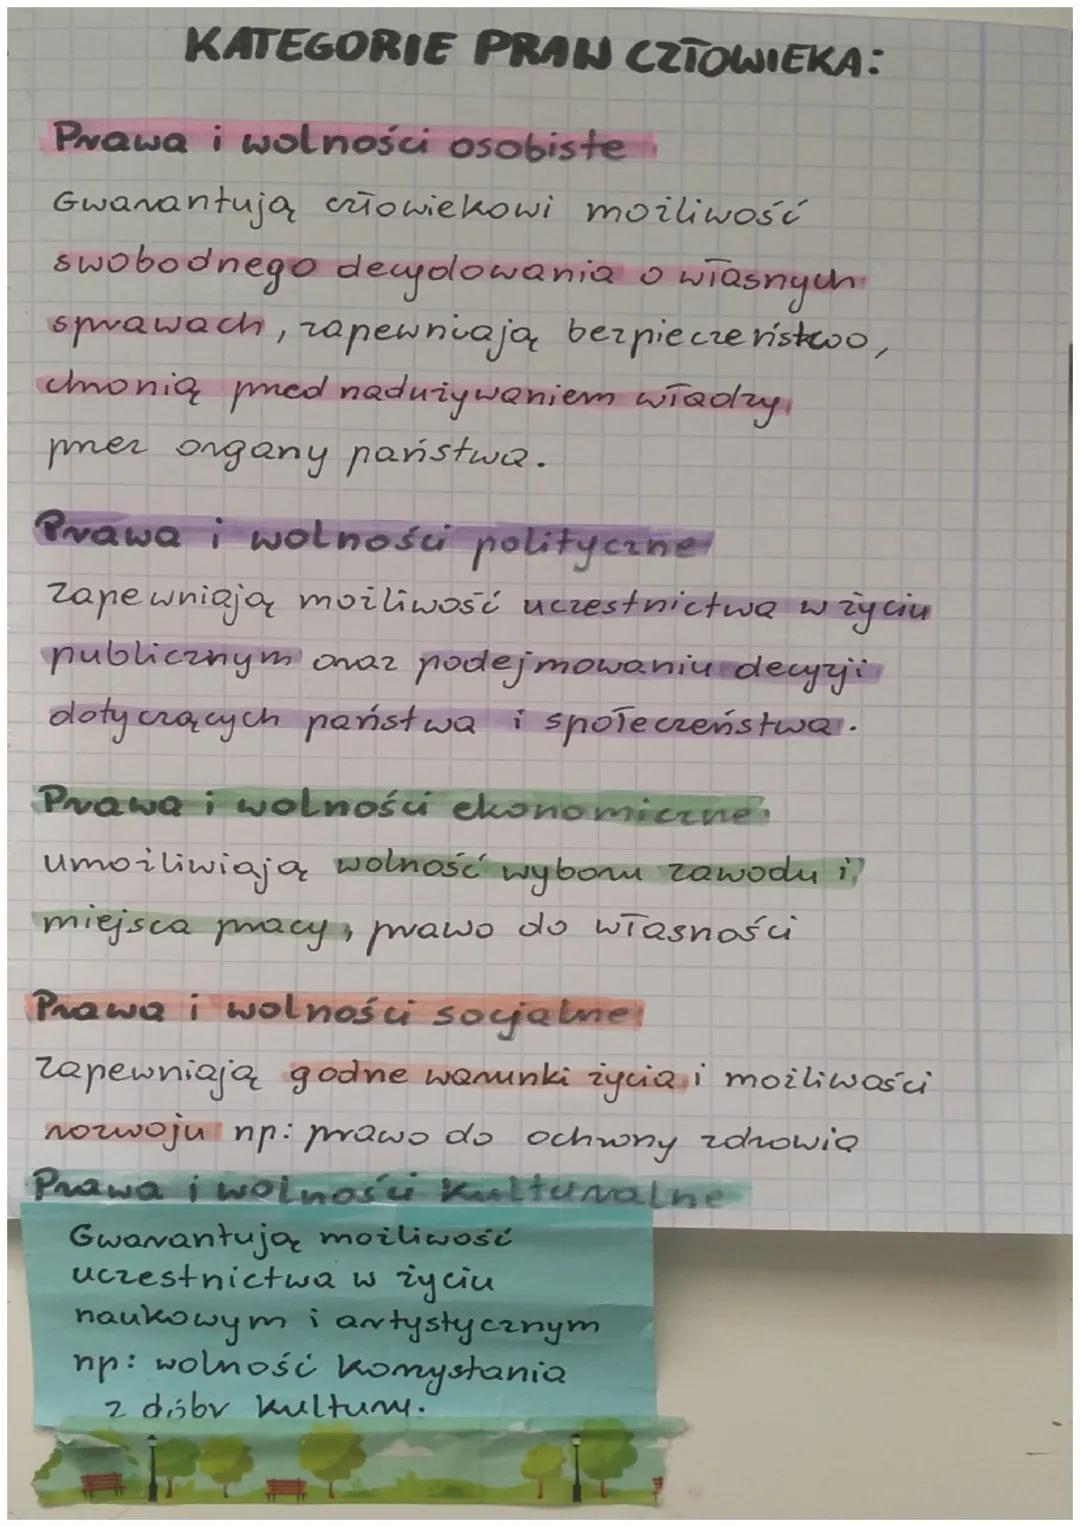 KATEGORIE PRAW CZŁOWIEKA:
Prawa i wolności osobiste
Gwarantują człowiekowi możliwość
swobodnego decydowania o własnych
sprawach, zapewniają bezpieczeństwo,
chronią przed nadużywaniem władzy
przez organy państwa.
Prawa i wolności polityczne
Zapewniają możliwość uczestnictwa w życiu
publicznym oraz podejmowaniu decyzji
dotyczących państwa i społeczeństwa.
Prawa i wolności ekonomiczne
umożliwiają wolność wyboru zawodu i
miejsca pracy, prawo do własności
Prawa i wolności socjalne
Zapewniają godne warunki życia i możliwości
rozwoju np: prawo do ochrony zdrowia
Prawa i wolności kulturalne
Gwarantują możliwość
uczestnictwa w życiu
naukowym i artystycznym
np: wolność korzystania
z dóbr kultury.